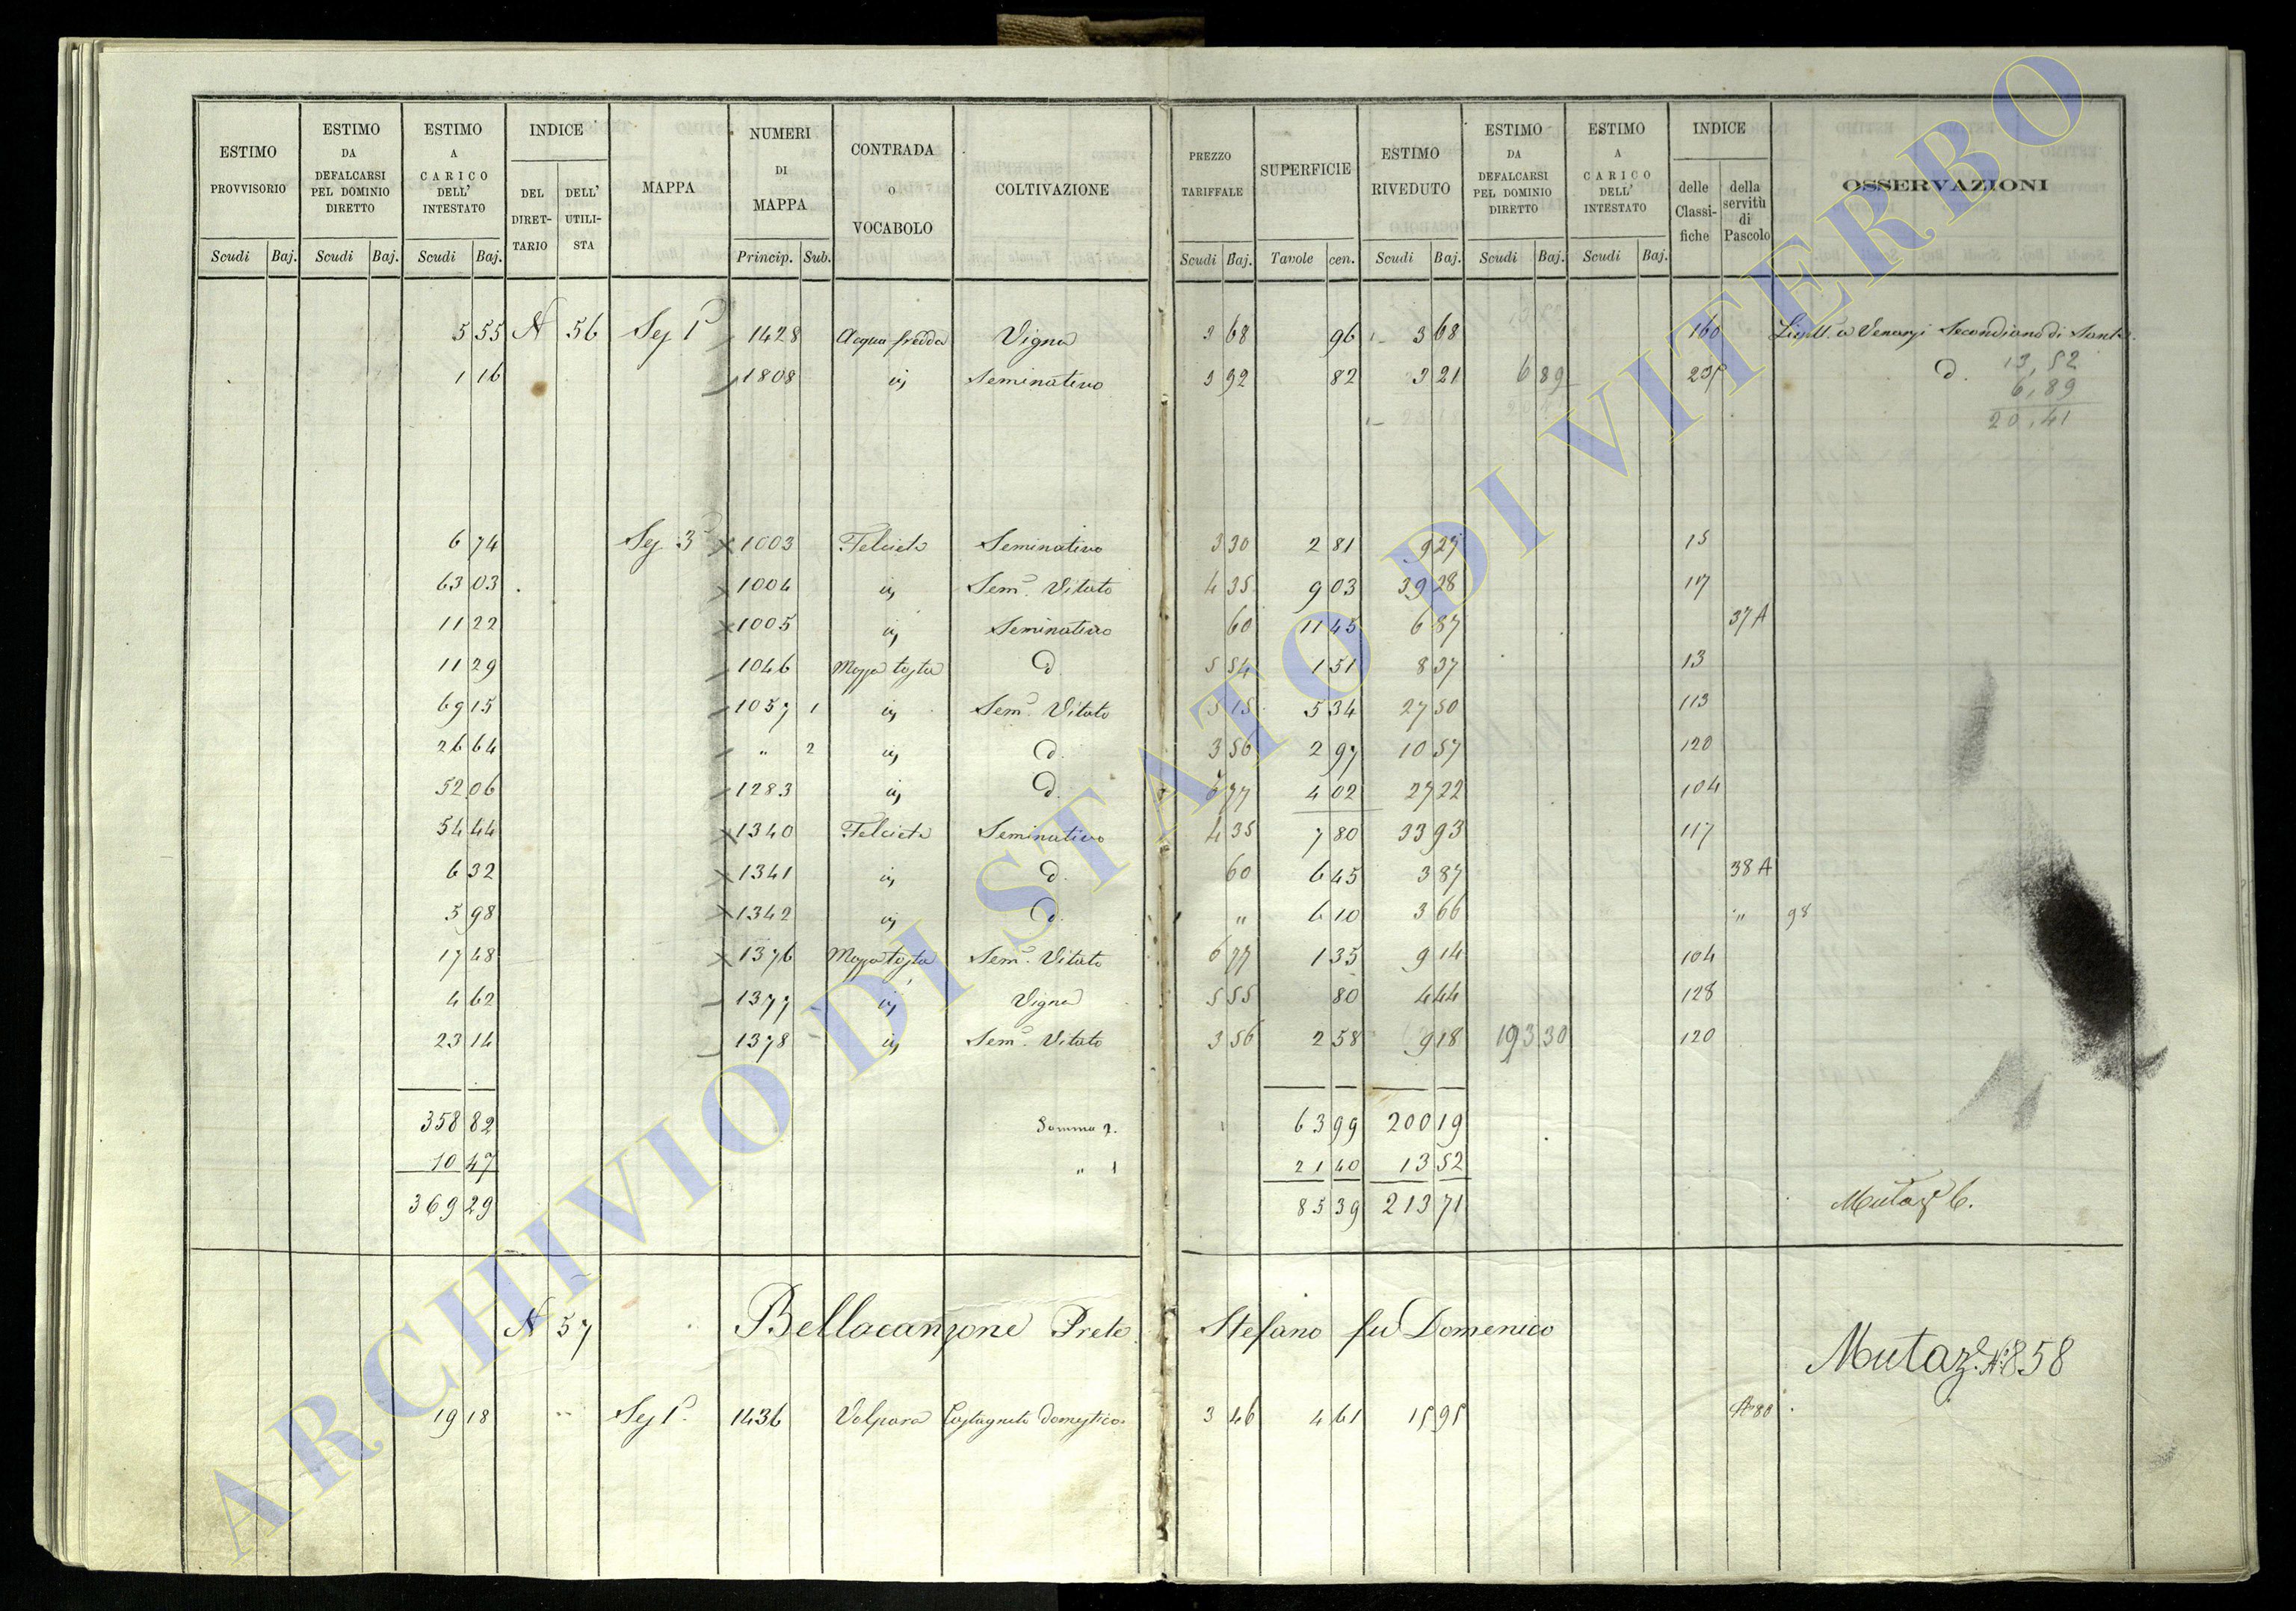 ESTIMO PROVVISORIO | ESTIMO DA DEFALCARSI PEL DOMINIO DIRETTO | ESTIMO A CARICO DELL' INTESTATO | INDICE DEL DIRETTARIO | DELL' UTILISTA | MAPPA | NUMERI DI MAPPA | CONTRADA O VOCABOLO | COLTIVAZIONE | PREZZO TARIFFALE | SUPERFICIE | ESTIMO RIVEDUTO | ESTIMO DA DEFALCARSI PEL DOMINIO DIRETTO | ESTIMO A CARICO DELL' INTESTATO | INDICE delle Classifiche | della servitù di Pascolo | OSSERVAZIONI
Scudi Baj. Scudi Baj. Scudi Baj. Princip. Sub. Scudi Baj. Tavole cen. Scudi Baj. Scudi Baj. Scudi Baj.
5 55 N 56 Sez 1ª 1428 Acqua fredda Vigna 3 68 96 3 68 160 a Venanzi Secondiano di Sante
1 16 1808 ivi Seminativo 3 92 82 3 21 6 89 d. 13,52
6,89
20,41
6 74 Sez 3ª 1003 Felceto Seminativo 3 30 2 81 9 27 15
63 03 1004 ivi Semº. Vitato 4 35 9 03 39 28 117
11 22 1005 ivi Seminativo 60 11 45 6 87 37 A
11 29 1046 Mazza tosta d 5 54 1 51 8 37 13
69 15 1057 1 ivi Semº. Vitato 5 15 5 34 27 50 113
26 64 " 2 ivi d. 3 56 2 97 10 57 120
52 06 1283 ivi d. 6 77 4 02 27 22 104
54 44 1340 Felceto Seminativo 4 35 7 80 33 93 117
6 32 1341 ivi d. 60 6 45 3 87 38 A
5 98 1342 ivi d. " 6 10 3 66 " 98
17 48 1376 Mazza tosta Semº. Vitato 6 77 1 35 9 14 104
4 62 1377 ivi Vigna 5 55 80 4 44 128
23 14 1378 ivi Semº. Vitato 3 56 2 58 9 18 193 30 120
358 82 Somma 2. 63 99 200 19
10 47 " 1 21 40 13 52
369 29 85 39 213 71 Mutazº 6.
N 57 Bellacanzone Prete Stefano fu Domenico
Mutazº. Nº 858
19 18 " Sez 1ª. 1436 Volpara Castagneto domestico 3 46 4 61 15 95 A 80
ARCHIVIO DI STATO DI VITERBO